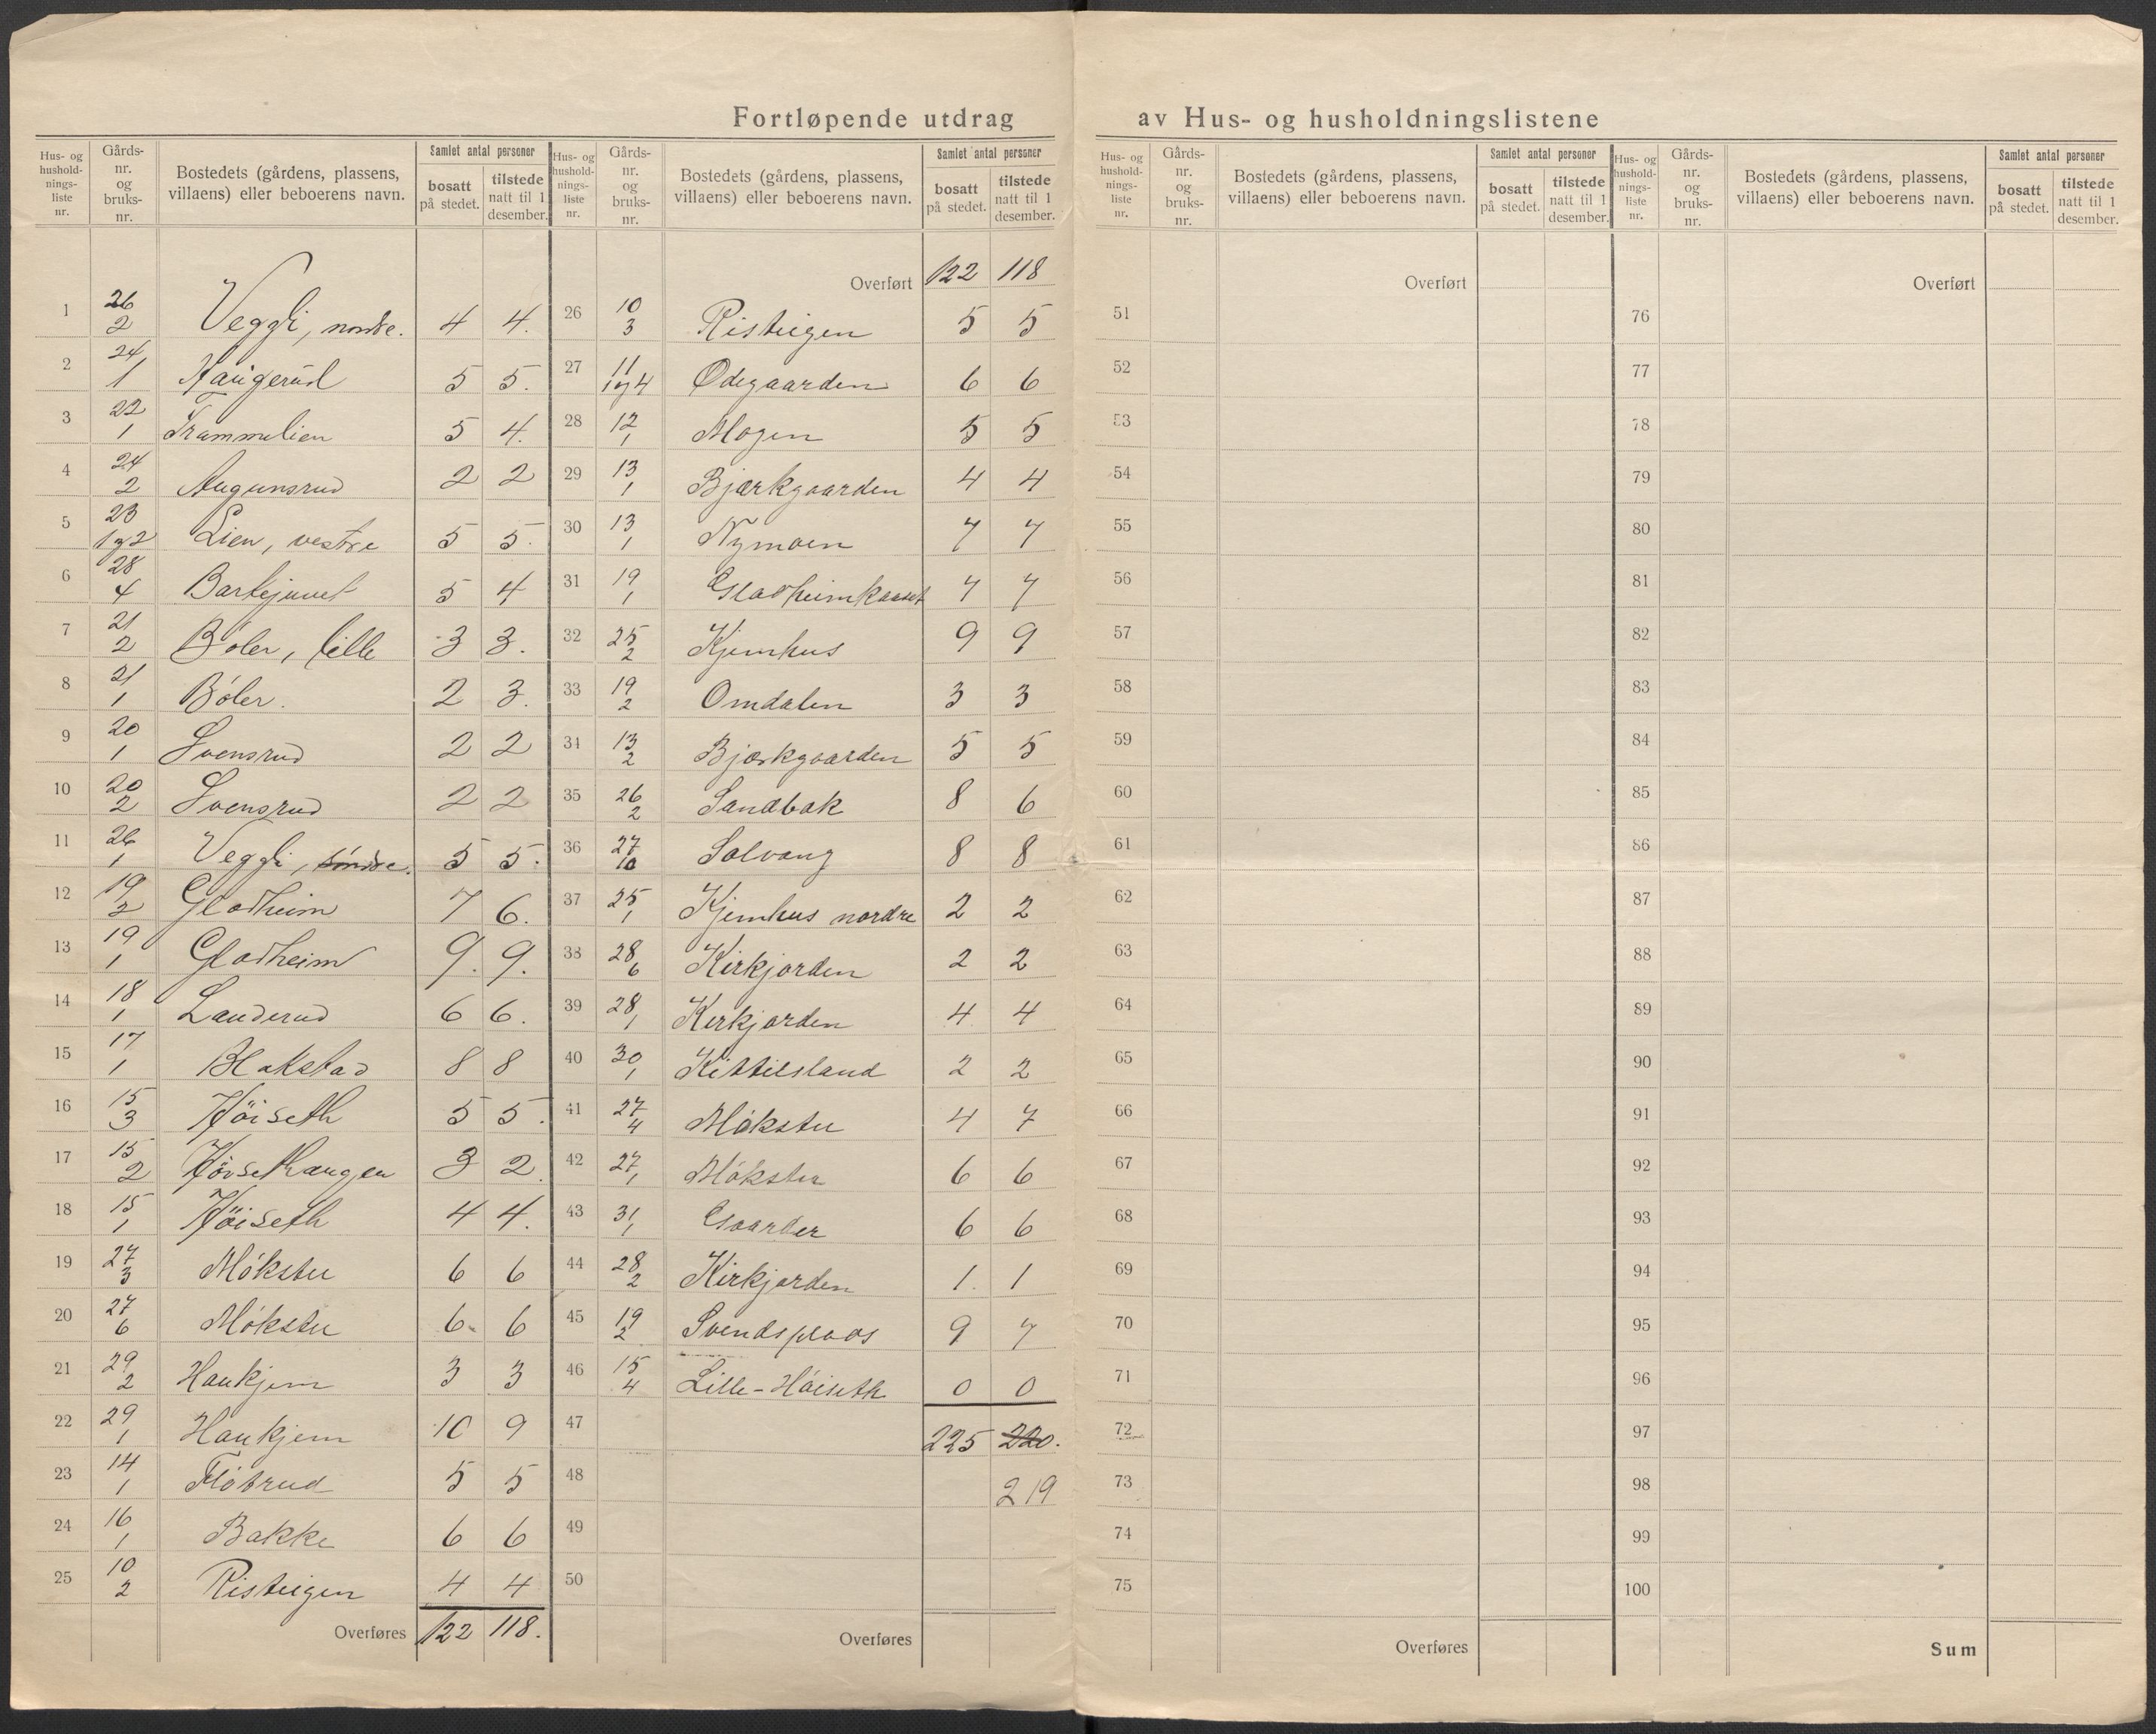 Fortløpende utdrag av Hus- og husholdningslistene
Hus- og hushold-nings-liste nr. | Gårds-nr. og bruks-nr. | Bostedets (gårdens, plassens, villaens) eller beboerens navn. | Samlet antal personer | bosatt på stedet. | tilstede natt til 1 desember.
1 26/2 Veggli, nordre. 4 4.
2 24/1 Haugerud 5 5.
3 22/1 Trammelien 5 4.
4 24/2 Augunsrud 2 2
5 23/1 og 2 Lien, vestre 5 5.
6 28/4 Barkejuvet 5 4
7 21/2 Böler, lille 3 3.
8 21/1 Böler. 2 3.
9 20/1 Svensrud 2 2
10 20/2 Svensrud 2 2
11 26/1 Veggli, söndre. 5 5.
12 19/2 Gladheim 7 6.
13 19/1 Gladheim 9. 9.
14 18/1 Landerud 6 6.
15 17/1 Blakstad 8 8
16 15/3 Höiseth 5 5.
17 15/2 Höisethaugen 3 2.
18 15/1 Höiseth 4 4.
19 27/3 Mökstu 6 6
20 27/6 Mökstu 6 6
21 29/2 Haukjem 3 3
22 29/1 Haukjem 10 9
23 14/1 Flöbrud 5 5
24 16/1 Bakke 6 6
25 10/2 Risteigen 4 4
Overføres 122 118.
Hus- og hushold-nings-liste nr. | Gårds-nr. og bruks-nr. | Bostedets (gårdens, plassens, villaens) eller beboerens navn. | Samlet antal personer | bosatt på stedet. | tilstede natt til 1 desember.
Overført 122 118
26 10/3 Risteigen 5 5
27 11/1 og 4 Ødegaarden 6 6
28 12/1 Mogen 5 5
29 13/1 Bjærkgaarden 4 4
30 13/1 Nymoen 7 7
31 19/1 Gladheimkaaset 7 7
32 25/2 Kjemhus 9 9
33 19/2 Omdalen 3 3
34 13/2 Bjærkgaarden 5 5
35 26/2 Sandbak 8 6
36 27/10 Solvang 8 8
37 25/1 Kjemhus nordre 2 2
38 28/6 Kirkjorden 2 2
39 28/1 Kirkjorden 4 4
40 30/1 Kittilsland 2 2
41 27/4 Mökstu 4 7
42 27/1 Mökstu 6 6
43 31/1 Gaarder 6 6
44 28/2 Kirkjorden 1. 1
45 19/2 Svendsplads 9 7
46 15/4 Lille-Höiseth 0 0
47 225 220.
48 219
49
50
Overføres
Hus- og hushold-nings-liste nr. | Gårds-nr. og bruks-nr. | Bostedets (gårdens, plassens, villaens) eller beboerens navn. | Samlet antal personer | bosatt på stedet. | tilstede natt til 1 desember.
Overført
51
52
53
54
55
56
57
58
59
60
61
62
63
64
65
66
67
68
69
70
71
72
73
74
75
Overføres
Hus- og hushold-nings-liste nr. | Gårds-nr. og bruks-nr. | Bostedets (gårdens, plassens, villaens) eller beboerens navn. | Samlet antal personer | bosatt på stedet. | tilstede natt til 1 desember.
Overført
76
77
78
79
80
81
82
83
84
85
86
87
88
89
90
91
92
93
94
95
96
97
98
99
100
Sum